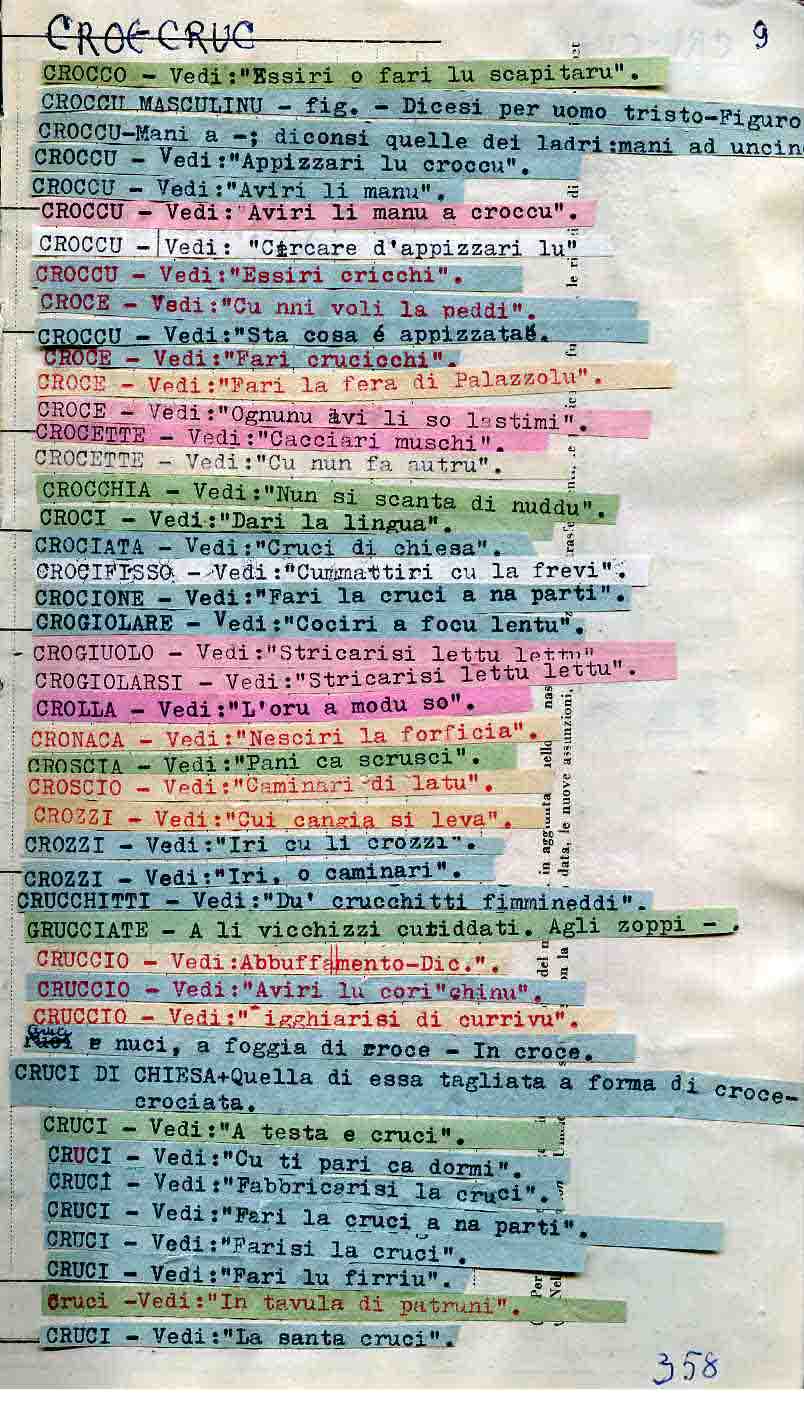 CROC-CRUC 9
CROCCO - Vedi:"Essiri o fari lu scapitaru".
CROCCU MASCULINU - fig. - Dicesi per uomo tristo-Figuro
CROCCU-Mani a -; diconsi quelle dei ladri:mani ad uncin
CROCCU - Vedi:"Appizzari lu croccu".
CROCCU - Vedi:"Aviri li manu".
CROCCU - Vedi:"Aviri li manu a croccu".
CROCCU - Vedi: "Circare d'appizzari lu"
CROCCU - Vedi:"Essiri cricchi".
CROCE - Vedi:"Cu nni voli la peddi".
CROCCU - Vedi:"Sta cosa é appizzata".
CROCE - Vedi:"Fari crucicchi".
CROCE - Vedi:"Fari la fera di Palazzolu".
CROCE - Vedi:"Ognunu avi li so lastimi".
CROCETTE - Vedi:"Cacciari muschi".
CROCETTE - Vedi:"Cu nun fa autru".
CROCCHIA - Vedi:"Nun si scanta di nuddu".
CROCI - Vedi:"Dari la lingua".
CROCIATA - Vedi:"Cruci di chiesa".
CROCIFISSO - Vedi:"Cummattiri cu la frevi".
CROCIONE - Vedi:"Fari la cruci a na parti".
CROGIOLARE - Vedi:"Cociri a focu lentu".
CROGIUOLO - Vedi:"Stricarisi lettu lettu"
CROGIOLARSI - Vedi:"Stricarisi lettu lettu".
CROLLA - Vedi:"L'oru a modu so".
CRONACA - Vedi:"Nesciri la forficia".
CROSCIA - Vedi:"Pani ca scrusci".
CROSCIO - Vedi:"Caminari di latu".
CROZZI - Vedi:"Cui cangia si leva".
CROZZI - Vedi:"Iri cu li crozzi".
CROZZI - Vedi:"Iri, o caminari".
CRUCCHITTI - Vedi:"Du' crucchitti fimmineddi".
GRUCCIATE - A li vicchizzi cutiddati. Agli zoppi - .
CRUCCIO - Vedi:Abbuffamento-Dic.".
CRUCCIO - Vedi:"Aviri lu cori"chinu".
CRUCCIO - Vedi:" igghiarisi di currivu".
Cruci e nuci, a foggia di croce - In croce.
CRUCI DI CHIESA+Quella di essa tagliata a forma di croce-
crociata.
CRUCI - Vedi:"A testa e cruci".
CRUCI - Vedi:"Cu ti pari ca dormi".
CRUCI - Vedi:"Fabbricarisi la cruci".
CRUCI - Vedi:"Fari la cruci a na parti".
CRUCI - Vedi:"Farisi la cruci".
CRUCI - Vedi:"Fari lu firriu".
Cruci -Vedi:"In tavula di patruni".
CRUCI - Vedi:"La santa cruci".
358
in aggiunta
data, le nuove assunzioni,